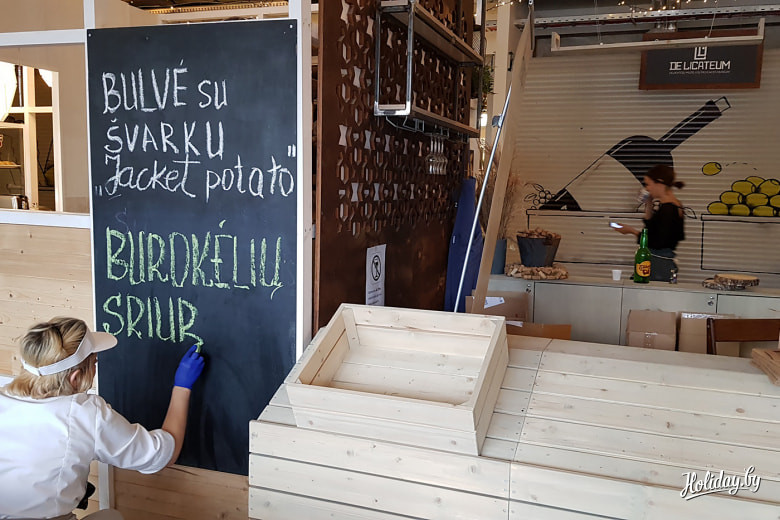 BULVÉ SU
ŠVARKU
„Jacket potato"
BUROKĖLIŲ
SRIUB
DELICATEUM
Holiday.by